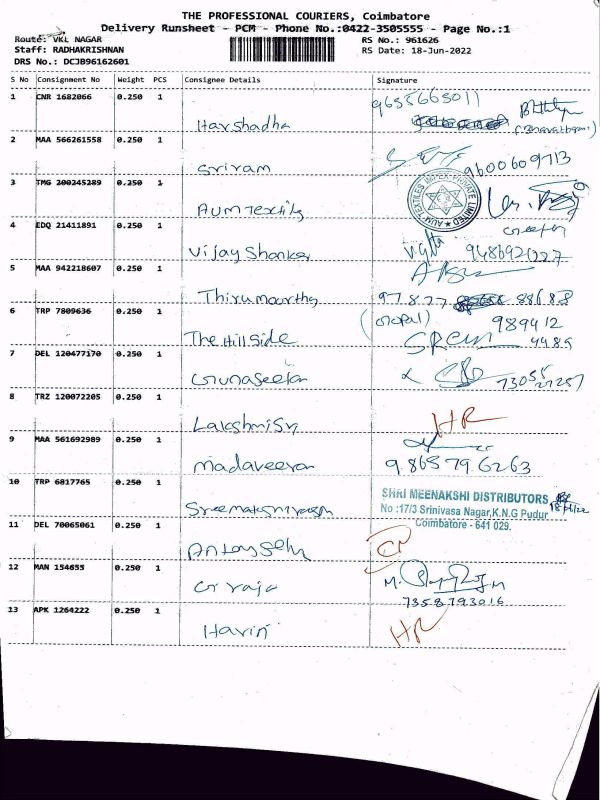 THE PROFESSIONAL COURIERS, Coimbatore
Delivery Runsheet - PCM - Phone No.:0422-3505555 - Page No.:1
Route: VKL NAGAR
RS No.: 961626
Staff: RADHAKRISHNAN
RS Date: 18-Jun-2022
DRS No.: DCJB96162601
S No Consignment No Weight PCS Consignee Details Signature
1 CNR 1682066 0.250 1
9655665011
Harshadha
2 MAA 566261558 0.250 1
Sriram 9600609713
3 TMG 200245289 0.250 1
AUM TEXTILES IMPEX PRIVATE LIMITED
Aum Textils
4 EDQ 21411891 0.250 1
Vijay Shankar
5 MAA 942218607 0.250 1
Thirumoorthy 97877 88688
6 TRP 7809636 0.250 1
(Gopal) 989412
The Hill Side 4489
7 DEL 120477170 0.250 1
Gunaseelan 73055
8 TRZ 120072205 0.250 1
Lakshmi Sri HR
9 MAA 561692989 0.250 1
Madaveeran 9.865796263
10 TRP 6817765 0.250 1
SHRI MEENAKSHI DISTRIBUTORS
No :17/3 Srinivasa Nagar,K.N.G Pudur
Coimbatore - 641 029.
11 DEL 70065061 0.250 1
Antony Selv
12 MAN 154655 0.250 1
G raja 7358793016
13 APK 1264222 0.250 1
Harini HR